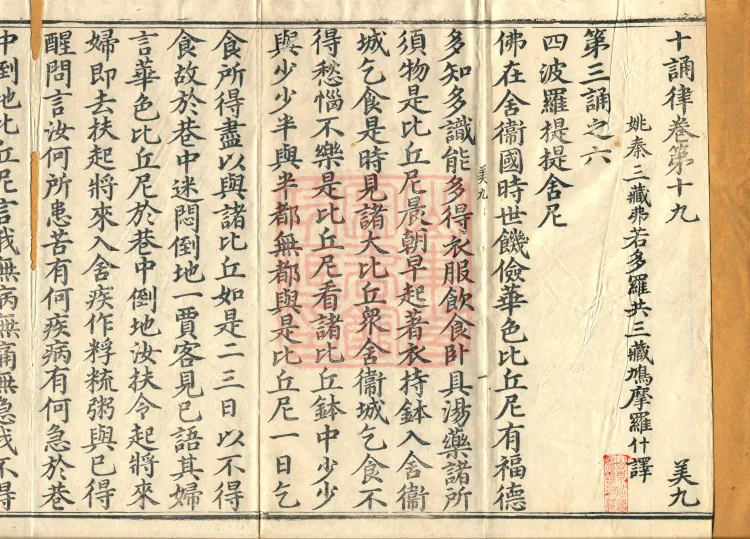 十誦律卷第十九 美九
姚秦三藏弗若多羅共三藏鳩摩羅什譯
第三誦之六
四波羅提提舍尼
佛在舍衞國時世饑儉華色比丘尼有福德
美九 一
多知多識能多得衣服飲食卧具湯藥諸所
須物是比丘尼晨朝早起著衣持鉢入舍衞
城乞食是時見諸大比丘衆舍衞城乞食不
得愁惱不樂是比丘尼看諸比丘鉢中少少
與少少半與半都無都與是比丘尼一日乞
食所得盡以與諸比丘如是二三日以不得
食故於巷中迷悶倒地一賈客見已語其婦
言華色比丘尼於巷中倒地汝扶令起將來
婦即去扶起將來入舍疾作粰䊩粥與已得
醒問言汝何所患苦有何疾病有何急於巷
中倒地比丘尼言我無病無痛無急我不得